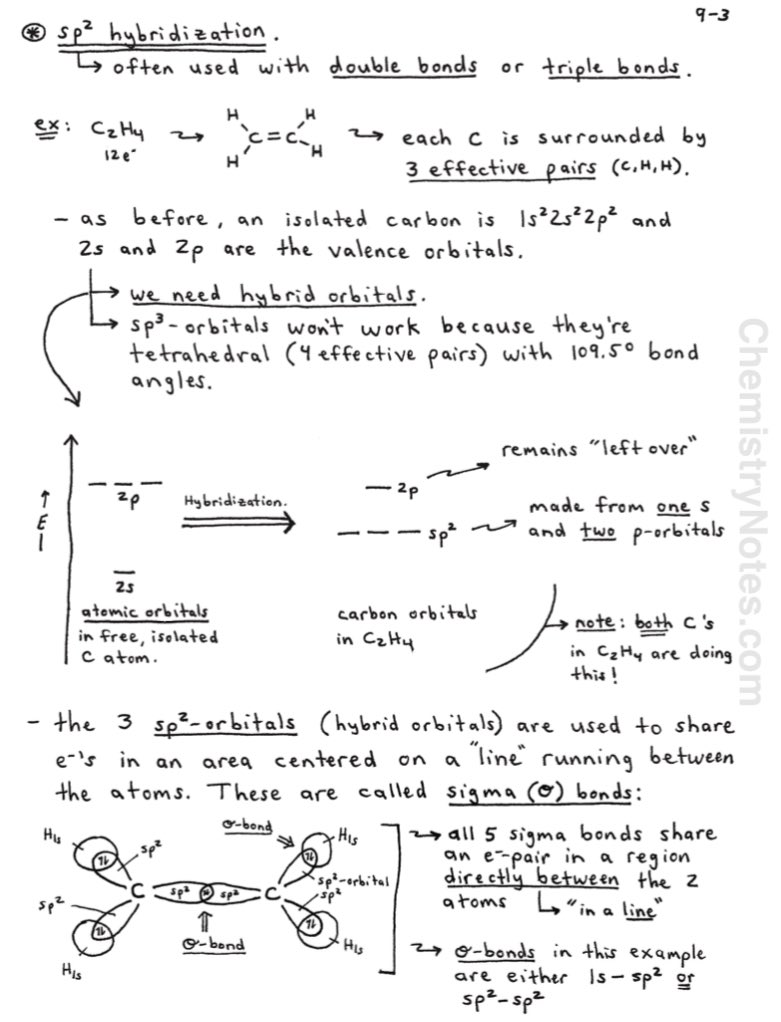 9-3
⊛ sp² hybridization.
↳ often used with double bonds or triple bonds.
ex: C₂H₄ → H H C=C H H → each C is surrounded by
12e⁻ 3 effective pairs (C,H,H).
- as before, an isolated carbon is 1s²2s²2p² and
2s and 2p are the valence orbitals.
→ we need hybrid orbitals.
↳ sp³-orbitals won't work because they're
tetrahedral (4 effective pairs) with 109.5° bond
angles.
remains "left over"
2p
Hybridization.
2p
made from one s
and two p-orbitals
sp²
E
2s
atomic orbitals
in free, isolated
C atom.
carbon orbitals
in C₂H₄
→ note: both C's
in C₂H₄ are doing
this!
- the 3 sp²-orbitals (hybrid orbitals) are used to share
e⁻'s in an area centered on a "line" running between
the atoms. These are called sigma (σ) bonds:
H1s sp² σ-bond H1s
sp² C sp² sp² C sp²-orbital
sp²
σ-bond
H1s H1s
→ all 5 sigma bonds share
an e⁻-pair in a region
directly between the 2
atoms ↳ "in a line"
→ σ-bonds in this example
are either 1s-sp² or
sp²-sp²
ChemistryNotes.com